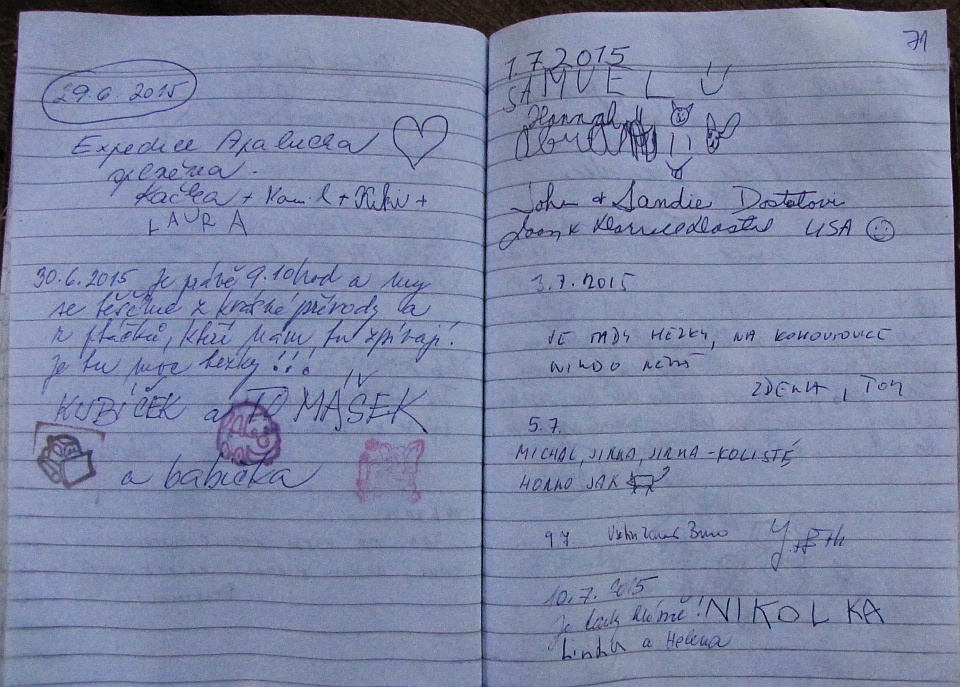 29.6. 2015
Expedice Apalucha
Kačka + Kamil + Kiki +
LAURA
30.6.2015 Je právě 9.10 hod a my
se těšíme z krásné přírody a
z ptáčků, kteří nám tu zpívají.
Je tu moc hezky!!!
KUBÍČEK a TOMÁŠEK
a babička
71
1.7.2015
SAMUEL
Hannah
John & Sandie Dostalovi
USA
3.7.2015
JE TADY HEZKY, NA KOHOUTOVICE
NIKDO NEMÁ
ZDENKA, TOM
5.7.
MICHAL, JIRKA, JIRKA - KOLIŠTĚ
HORKO JAK
9.7 Brno
10.7.2015
Je tady krásně! NIKOLKA
Linda a Helena